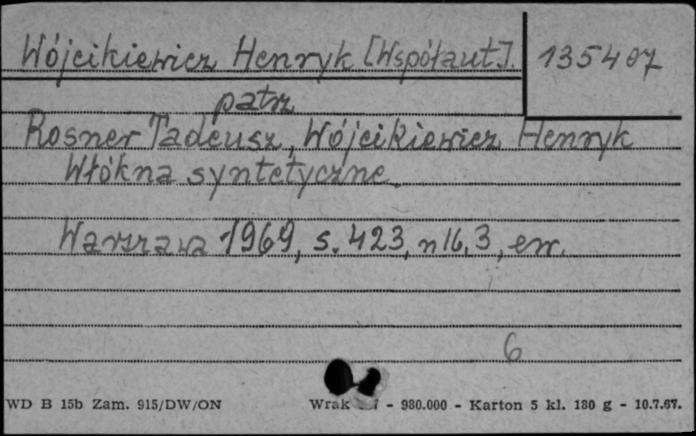 Wójcikiewicz Henryk [Współaut]. 135407
patrz
Rosner Tadeusz, Wójcikiewicz Henryk
Włókna syntetyczne.
Warszawa 1969, s. 423, n 16.3, err.
6
WD B 15b Zam. 915/DW/ON Wrak - 980.000 - Karton 5 kl. 180 g - 10.7.67.